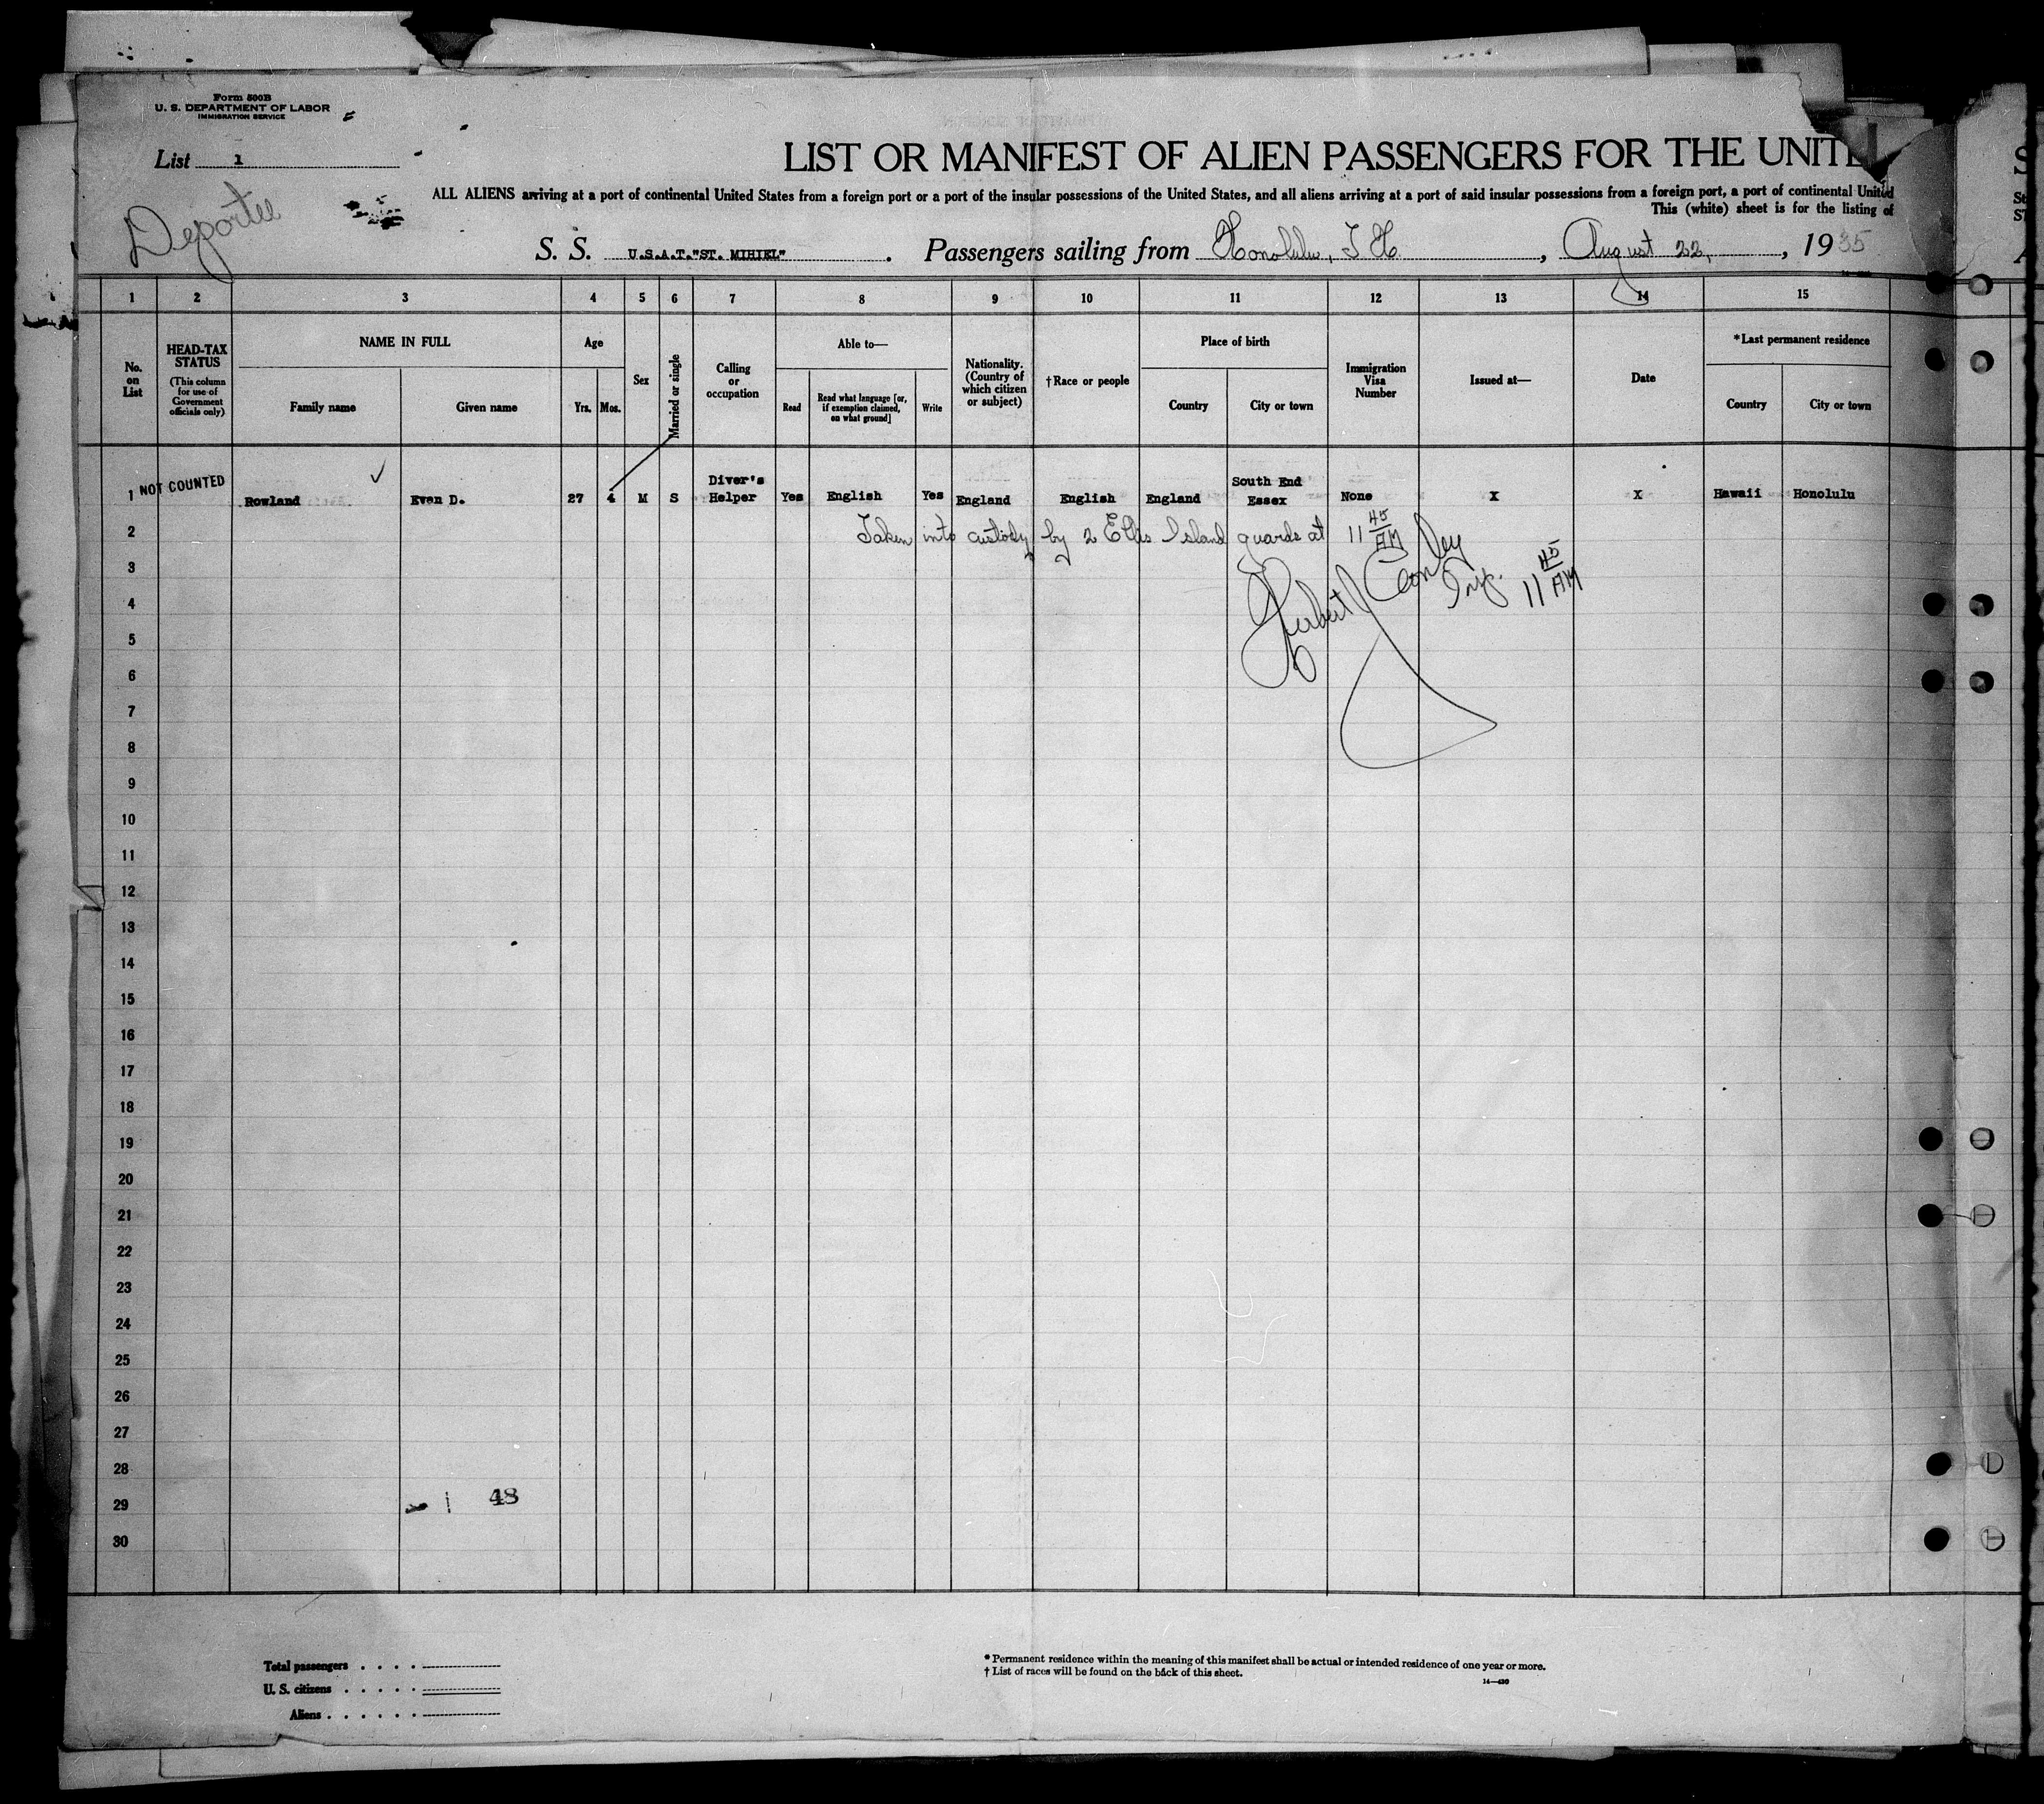 Form 500B
U. S. DEPARTMENT OF LABOR
IMMIGRATION SERVICE
List 1
Deportee
LIST OR MANIFEST OF ALIEN PASSENGERS FOR THE UNITE
ALL ALIENS arriving at a port of continental United States from a foreign port or a port of the insular possessions of the United States, and all aliens arriving at a port of said insular possessions from a foreign port, a port of continental United
This (white) sheet is for the listing of
S. S. U.S.A.T."ST. MIHIEL" . Passengers sailing from Honolulu, T H. , August 22, , 1935
1 2 3 4 5 6 7 8 9 10 11 12 13 14 15
No. on List
HEAD-TAX STATUS
(This column for use of Government officials only)
NAME IN FULL
Family name
Given name
Age
Yrs.
Mos.
Sex
Married or single
Calling or occupation
Able to—
Read
Read what language [or, if exemption claimed, on what ground]
Write
Nationality. (Country of which citizen or subject)
†Race or people
Place of birth
Country
City or town
Immigration Visa Number
Issued at—
Date
*Last permanent residence
Country
City or town
1 NOT COUNTED Rowland ✓ Evan D. 27 4 M S Diver's Helper Yes English Yes England English England South End Essex None X X Hawaii Honolulu
2 Taken into custody by 2 Ellis Island guards at 11 45 AM
Conley
3
11 45 AM
4
5
6
7
8
9
10
11
12
13
14
15
16
17
18
19
20
21
22
23
24
25
26
27
28
29 48
30
Total passengers . . . .
U. S. citizens . . . . .
Aliens . . . . . .
* Permanent residence within the meaning of this manifest shall be actual or intended residence of one year or more.
† List of races will be found on the back of this sheet.